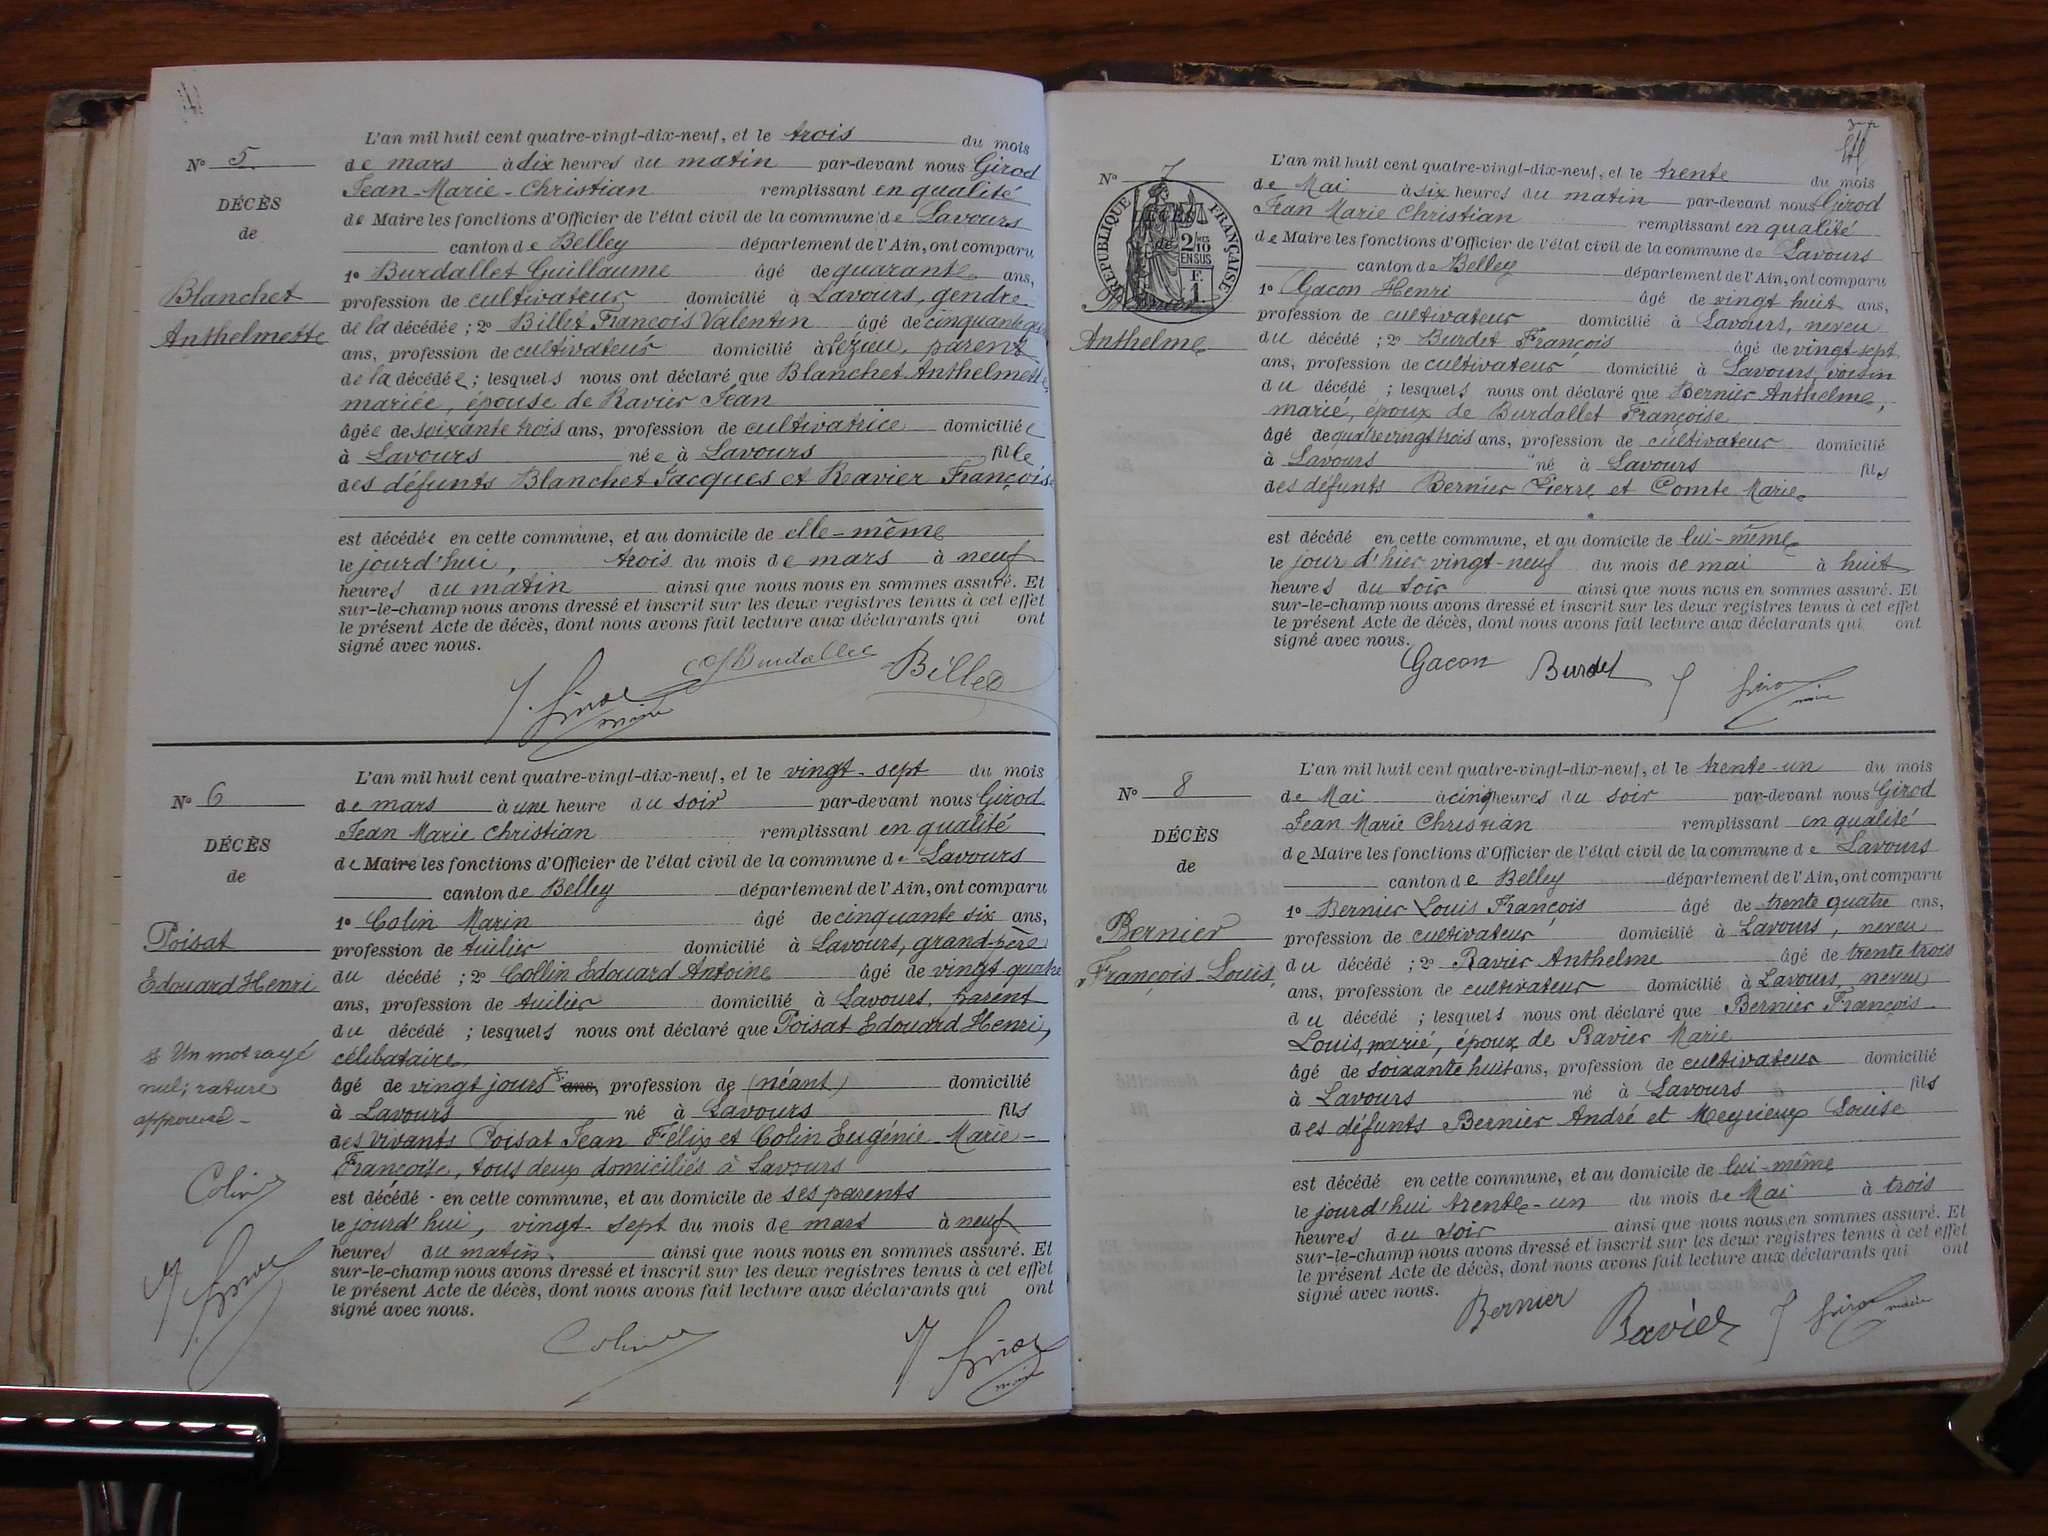 L'an mil huit cent quatre-vingt-dix-neuf, et le trois du mois
No 5
de mars à dix heures du matin par-devant nous Girod
Jean-Marie-Christian remplissant en qualité
DÉCÈS
de Maire les fonctions d'Officier de l'état civil de la commune de Lavours
de
canton de Belley département de l'Ain, ont comparu
1o Burdallet Guillaume âgé de quarante ans,
Blanchet
profession de cultivateur domicilié à Lavours, gendre
Anthelmette
de la décédée ; 2o Billet François Valentin âgé de cinquante
ans, profession de cultivateur domicilié à parent
de la décédée ; lesquels nous ont déclaré que Blanchet Anthelmette,
mariée, épouse de Ravier Jean
âgée de soixante trois ans, profession de cultivatrice domiciliée
à Lavours née à Lavours fille
des défunts Blanchet Jacques et Ravier Françoise
est décédée en cette commune, et au domicile de elle-même
le jourd'hui, trois du mois de mars à neuf
heures du matin ainsi que nous nous en sommes assuré. Et
sur-le-champ nous avons dressé et inscrit sur les deux registres tenus à cet effet
le présent Acte de décès, dont nous avons fait lecture aux déclarants qui ont
signé avec nous.
Burdallet Billet
J. Girod
maire
L'an mil huit cent quatre-vingt-dix-neuf, et le vingt-sept du mois
No 6
de mars à une heure du soir par-devant nous Girod
Jean Marie Christian remplissant en qualité
DÉCÈS
de Maire les fonctions d'Officier de l'état civil de la commune de Lavours
de
canton de Belley département de l'Ain, ont comparu
1o Colin Marin âgé de cinquante six ans,
Poisat
profession de tuilier domicilié à Lavours, grand-père
Edouard Henri
du décédé ; 2o Collin Edouard Antoine âgé de vingt-quatre
ans, profession de tuilier domicilié à Lavours, parent
du décédé ; lesquels nous ont déclaré que Poisat Edouard Henri,
Un mot rayé
célibataire
nul; rature
âgé de vingt jours ans, profession de (néant) domicilié
approuvée -
à Lavours né à Lavours fils
des vivants Poisat Jean Félix et Colin Eugénie-Marie-
Françoise, tous deux domiciliés à Lavours
Colin
est décédé en cette commune, et au domicile de ses parents
le jourd'hui, vingt-sept du mois de mars à neuf
J Girod
heures du matin. ainsi que nous nous en sommes assuré. Et
sur-le-champ nous avons dressé et inscrit sur les deux registres tenus à cet effet
le présent Acte de décès, dont nous avons fait lecture aux déclarants qui ont
signé avec nous.
Colin J Girod
maire
L'an mil huit cent quatre-vingt-dix-neuf, et le trente du mois
No 7
de Mai à six heures du matin par-devant nous Girod
Jean Marie Christian remplissant en qualité
RÉPUBLIQUE FRANÇAISE
DÉCÈS
de
2/10
EN SUS
F.
1
de Maire les fonctions d'Officier de l'état civil de la commune de Lavours
canton de Belley département de l'Ain, ont comparu
1o Gacon Henri âgé de vingt huit ans,
Bernier
profession de cultivateur domicilié à Lavours, neveu
Anthelme
du décédé ; 2o Burdet François âgé de vingt-sept
ans, profession de cultivateur domicilié à Lavours, voisin
du décédé ; lesquels nous ont déclaré que Bernier Anthelme,
marié, époux de Burdallet Françoise
âgé de quatre vingt trois ans, profession de cultivateur domicilié
à Lavours né à Lavours fils
des défunts Bernier Pierre et Comte Marie
est décédé en cette commune, et au domicile de lui-même
le jour d'hier vingt-neuf du mois de mai à huit
heures du soir ainsi que nous nous en sommes assuré. Et
sur-le-champ nous avons dressé et inscrit sur les deux registres tenus à cet effet
le présent Acte de décès, dont nous avons fait lecture aux déclarants qui ont
signé avec nous.
Gacon Burdet J Girod
maire
L'an mil huit cent quatre-vingt-dix-neuf, et le trente-un du mois
No 8
de Mai à cinq heures du soir par-devant nous Girod
Jean Marie Christian remplissant en qualité
DÉCÈS
de Maire les fonctions d'Officier de l'état civil de la commune de Lavours
de
canton de Belley département de l'Ain, ont comparu
1o Bernier Louis François âgé de trente quatre ans,
Bernier
profession de cultivateur domicilié à Lavours, neveu
François-Louis,
du décédé ; 2o Ravier Anthelme âgé de trente trois
ans, profession de cultivateur domicilié à Lavours, neveu
du décédé ; lesquels nous ont déclaré que Bernier François-
Louis, marié, époux de Ravier Marie
âgé de soixante huit ans, profession de cultivateur domicilié
à Lavours né à Lavours fils
des défunts Bernier André et Meyrieux Louise
est décédé en cette commune, et au domicile de lui-même
le jourd'hui trente-un du mois de Mai à trois
heures du soir ainsi que nous nous en sommes assuré. Et
sur-le-champ nous avons dressé et inscrit sur les deux registres tenus à cet effet
le présent Acte de décès, dont nous avons fait lecture aux déclarants qui ont
signé avec nous.
Bernier Ravier J Girod
maire